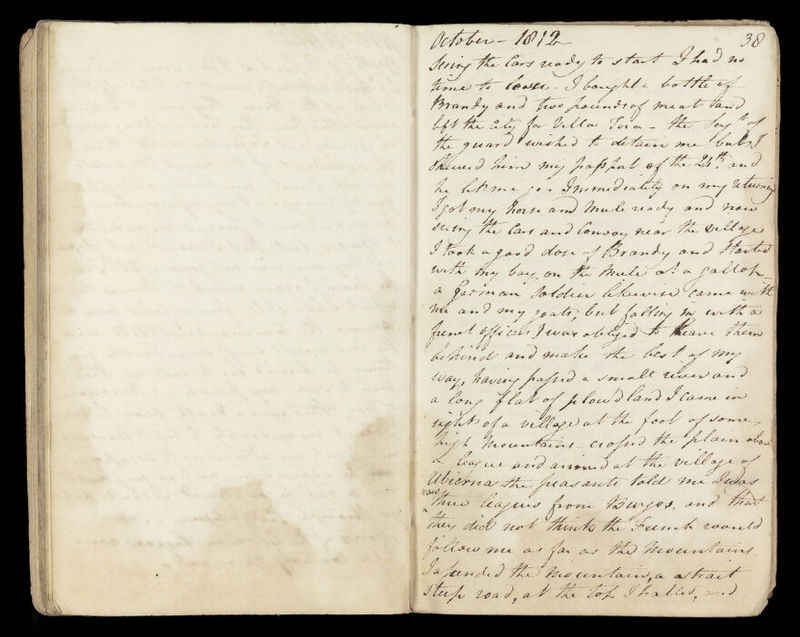 October - 1812 38
seeing the Cars ready to start I had no
time to loose - I bought a bottle of
Brandy and two pounds of meat and
left the City for Villa Tora - the Serj.t of
the guard wished to detain me but I
shewed him my passport of the 24th and
he let me go - Immediately on my returning
I got my horse and mule ready and now
seeing the Cars and Convoy near the village
I took a good dose of Brandy and Started
with my boy, on the Mule at a gallop -
a German Soldier likewise came with
me and my goats, but falling in with a
french officer I was obliged to leave them
behind and make the best of my
way, having passed a small river and
a long flat of plowd land I came in
sight of a village at the foot of some
high Mountains - crossed the plain about
a league and arrived at the village of
Ubierna the peasants told me I was
now three leagues from Burgos, and that
they did not think the French would
follow me as far as the Mountains -
I ascended the Mountain, a strait
steep road, at the top I halted, and